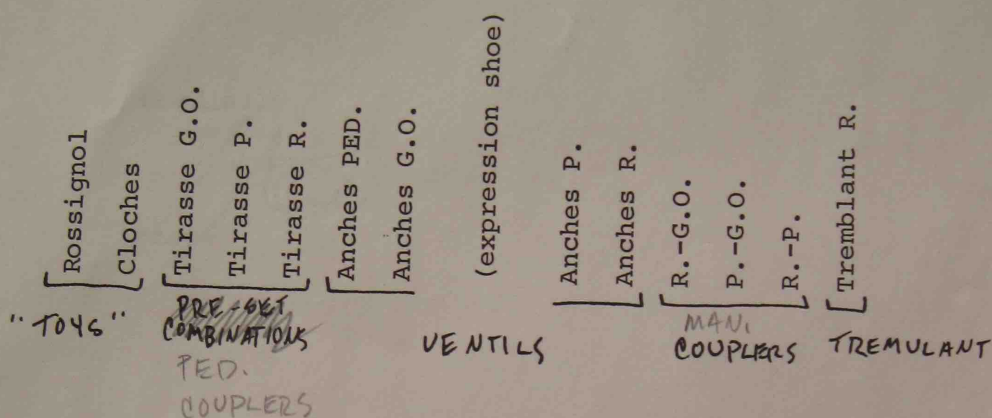 Rossignol
Cloches
Tirasse G.O.
Tirasse P.
Tirasse R.
Anches PED.
Anches G.O.
(expression shoe)
Anches P.
Anches R.
R.-G.O.
P.-G.O.
R.-P.
Tremblant R.
"TOYS"
PRE-SET
COMBINATIONS
PED.
COUPLERS
VENTILS
MAN.
COUPLERS
TREMULANT